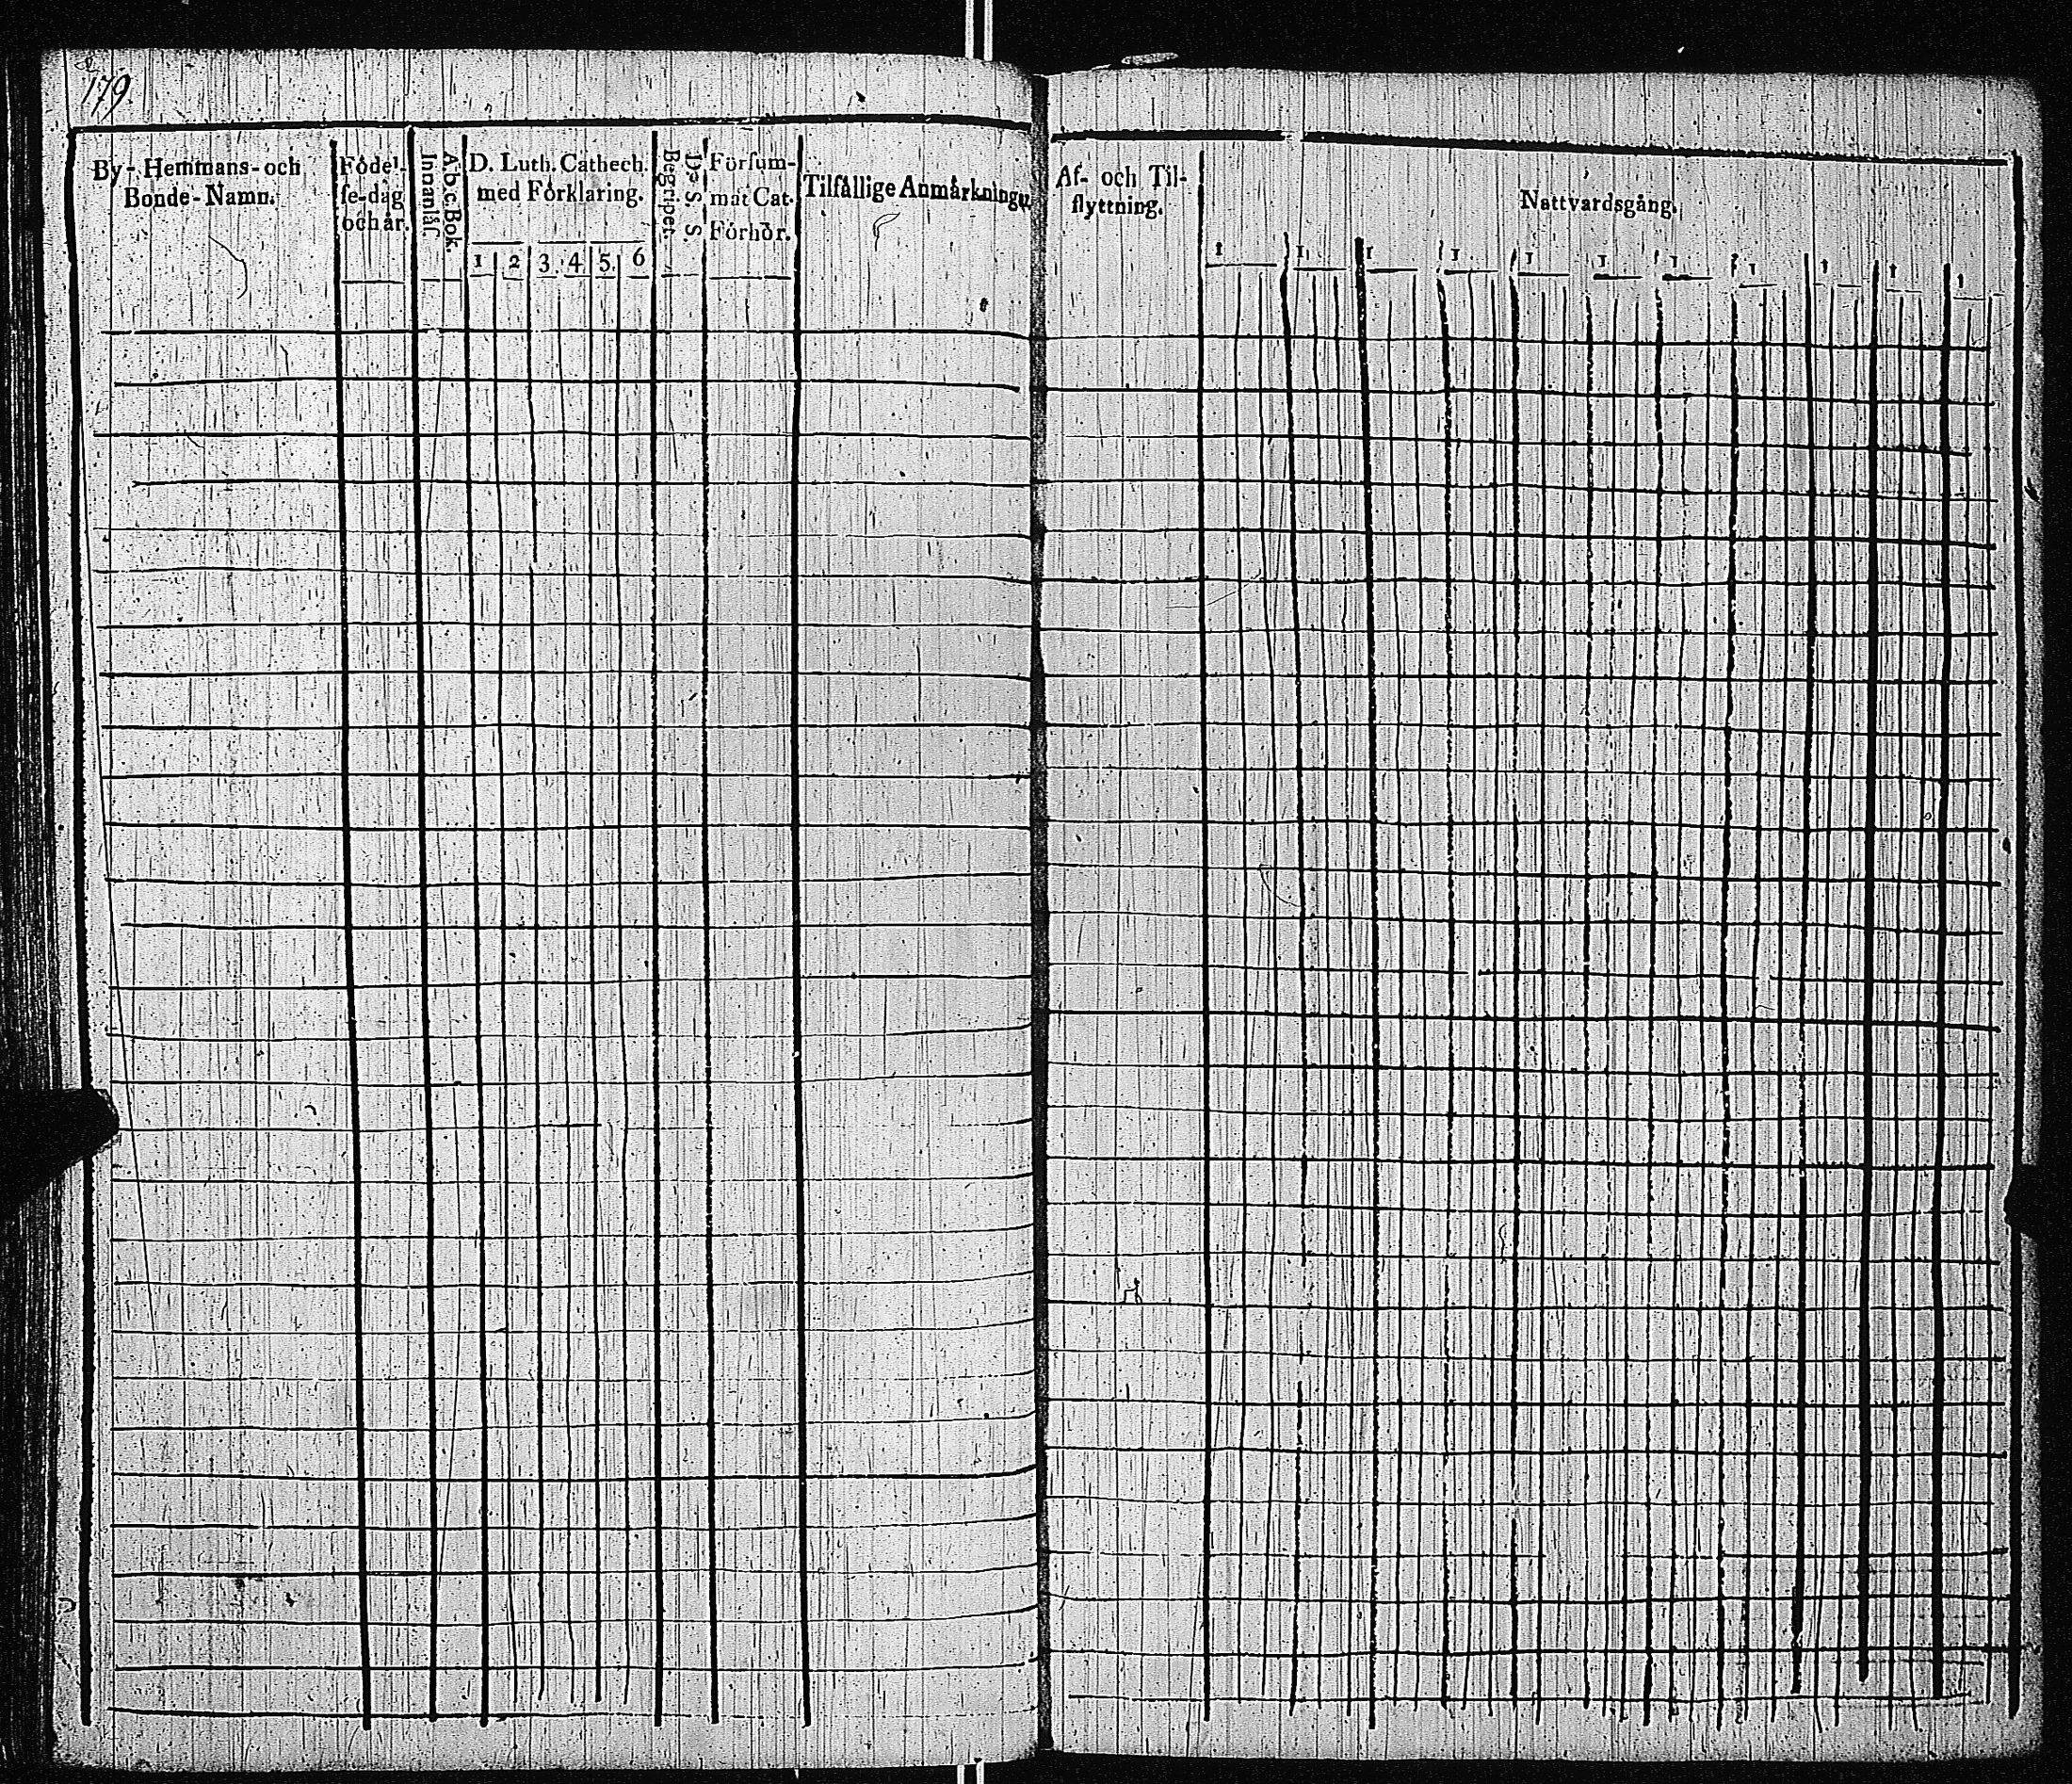 179.
By-, Hemmans- och
Bonde-Namn.
Födel-
ſe-dag
och år.
A.b.c.Bok.
Innanläſ.
D. Luth. Cathech.
med Förklaring.
1 2 3. 4. 5. 6
D:o S. S.
Begripet.
Förſum-
mat Cat.
Förhör.
Tilfällige Anmärkningar.
Af- och Til-
flyttning.
Nattvardsgång.
1 1 1 1 1 1 1 1 1 1 1